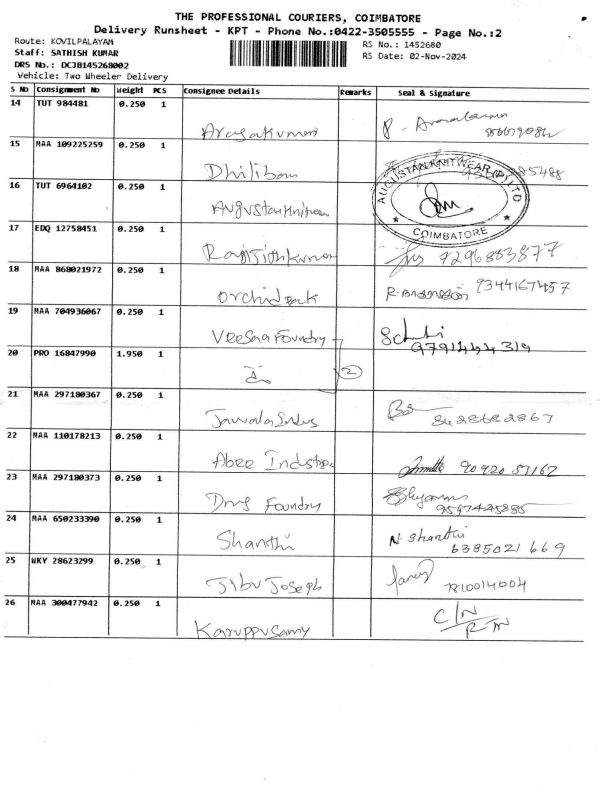 THE PROFESSIONAL COURIERS, COIMBATORE
Delivery Runsheet - KPT - Phone No.:0422-3505555 - Page No.:2
Route: KOVILPALAYAM
RS No.: 1452680
Staff: SATHISH KUMAR
RS Date: 02-Nov-2024
DRS No.: DCJB145268002
Vehicle: Two Wheeler Delivery
S No Consignment No Weight PCS Consignee Details Remarks Seal & Signature
14 TUT 984481 0.250 1
15 MAA 109225259 0.250 1
Dhiliban 85488
16 TUT 6964102 0.250 1
AUGUSTAN KNITWEAR (P) LTD
COIMBATORE
17 EDQ 12758451 0.250 1
Ranjithkumar 7296883877
18 MAA 868021972 0.250 1
Orchid park 9344167457
19 MAA 704936067 0.250 1
Veesaa Foundry 9791444319
20 PRO 16847990 1.950 1
2
21 MAA 297180367 0.250 1
8428682867
22 MAA 110178213 0.250 1
Abee 90920 51162
23 MAA 297180373 0.250 1
Foundry 9597425885
24 MAA 650233390 0.250 1
Shanthi N. Shanthi
6385021669
25 WKY 28623299 0.250 1
Jibu Joseph
26 MAA 300477942 0.250 1
Karuppusamy C/N